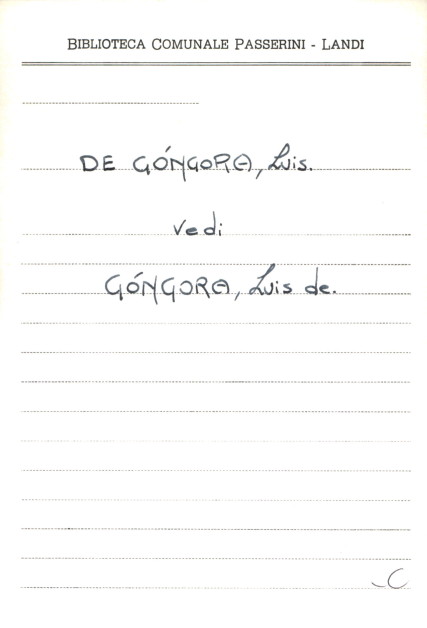 BIBLIOTECA COMUNALE PASSERINI - LANDI
DE GÓNGORA, Luis.
vedi
GÓNGORA, Luis de.